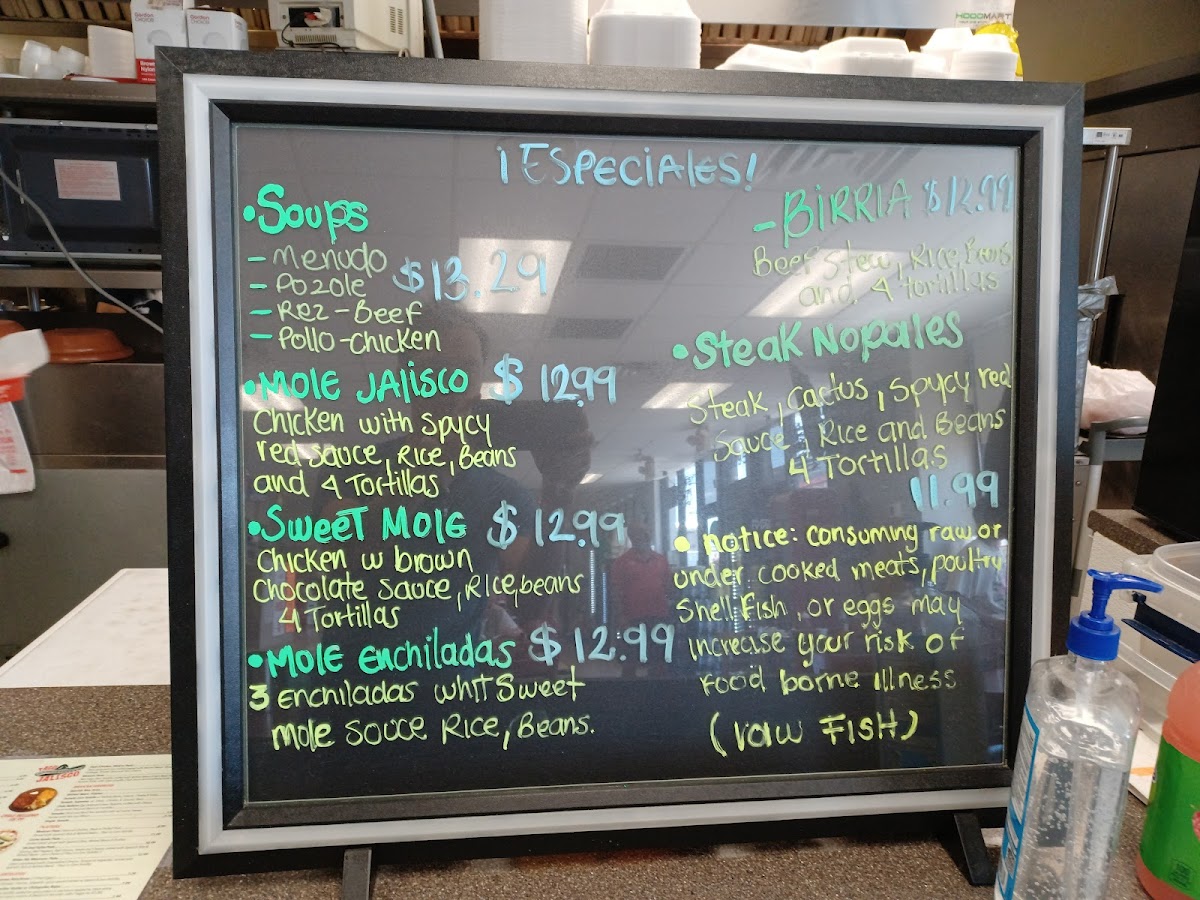 ¡ESPECIALES!
•Soups
- Menudo
- Pozole
$13.29
- Rez-Beef
- Pollo-chicken
•MOLE JALISCO $ 12.99
Chicken with spycy
red sauce, Rice, Beans
and 4 Tortillas
•SWEET MOLE $ 12.99
Chicken w brown
Chocolate Sauce, Rice, beans
4 Tortillas
•MOLE Enchiladas $ 12.99
3 enchiladas whit Sweet
mole souce Rice, Beans.
- BIRRIA $12.99
Beef Stew, Rice Beans
and 4 tortillas
•Steak Nopales
Steak, Cactus, Spycy red
Sauce, Rice and Beans
4 Tortillas
11.99
• notice: consuming raw or
under cooked meats, poultry
Shell Fish, or eggs may
increase your risk of
food borne illness
(raw FISH)
HODOMART
JALISCO